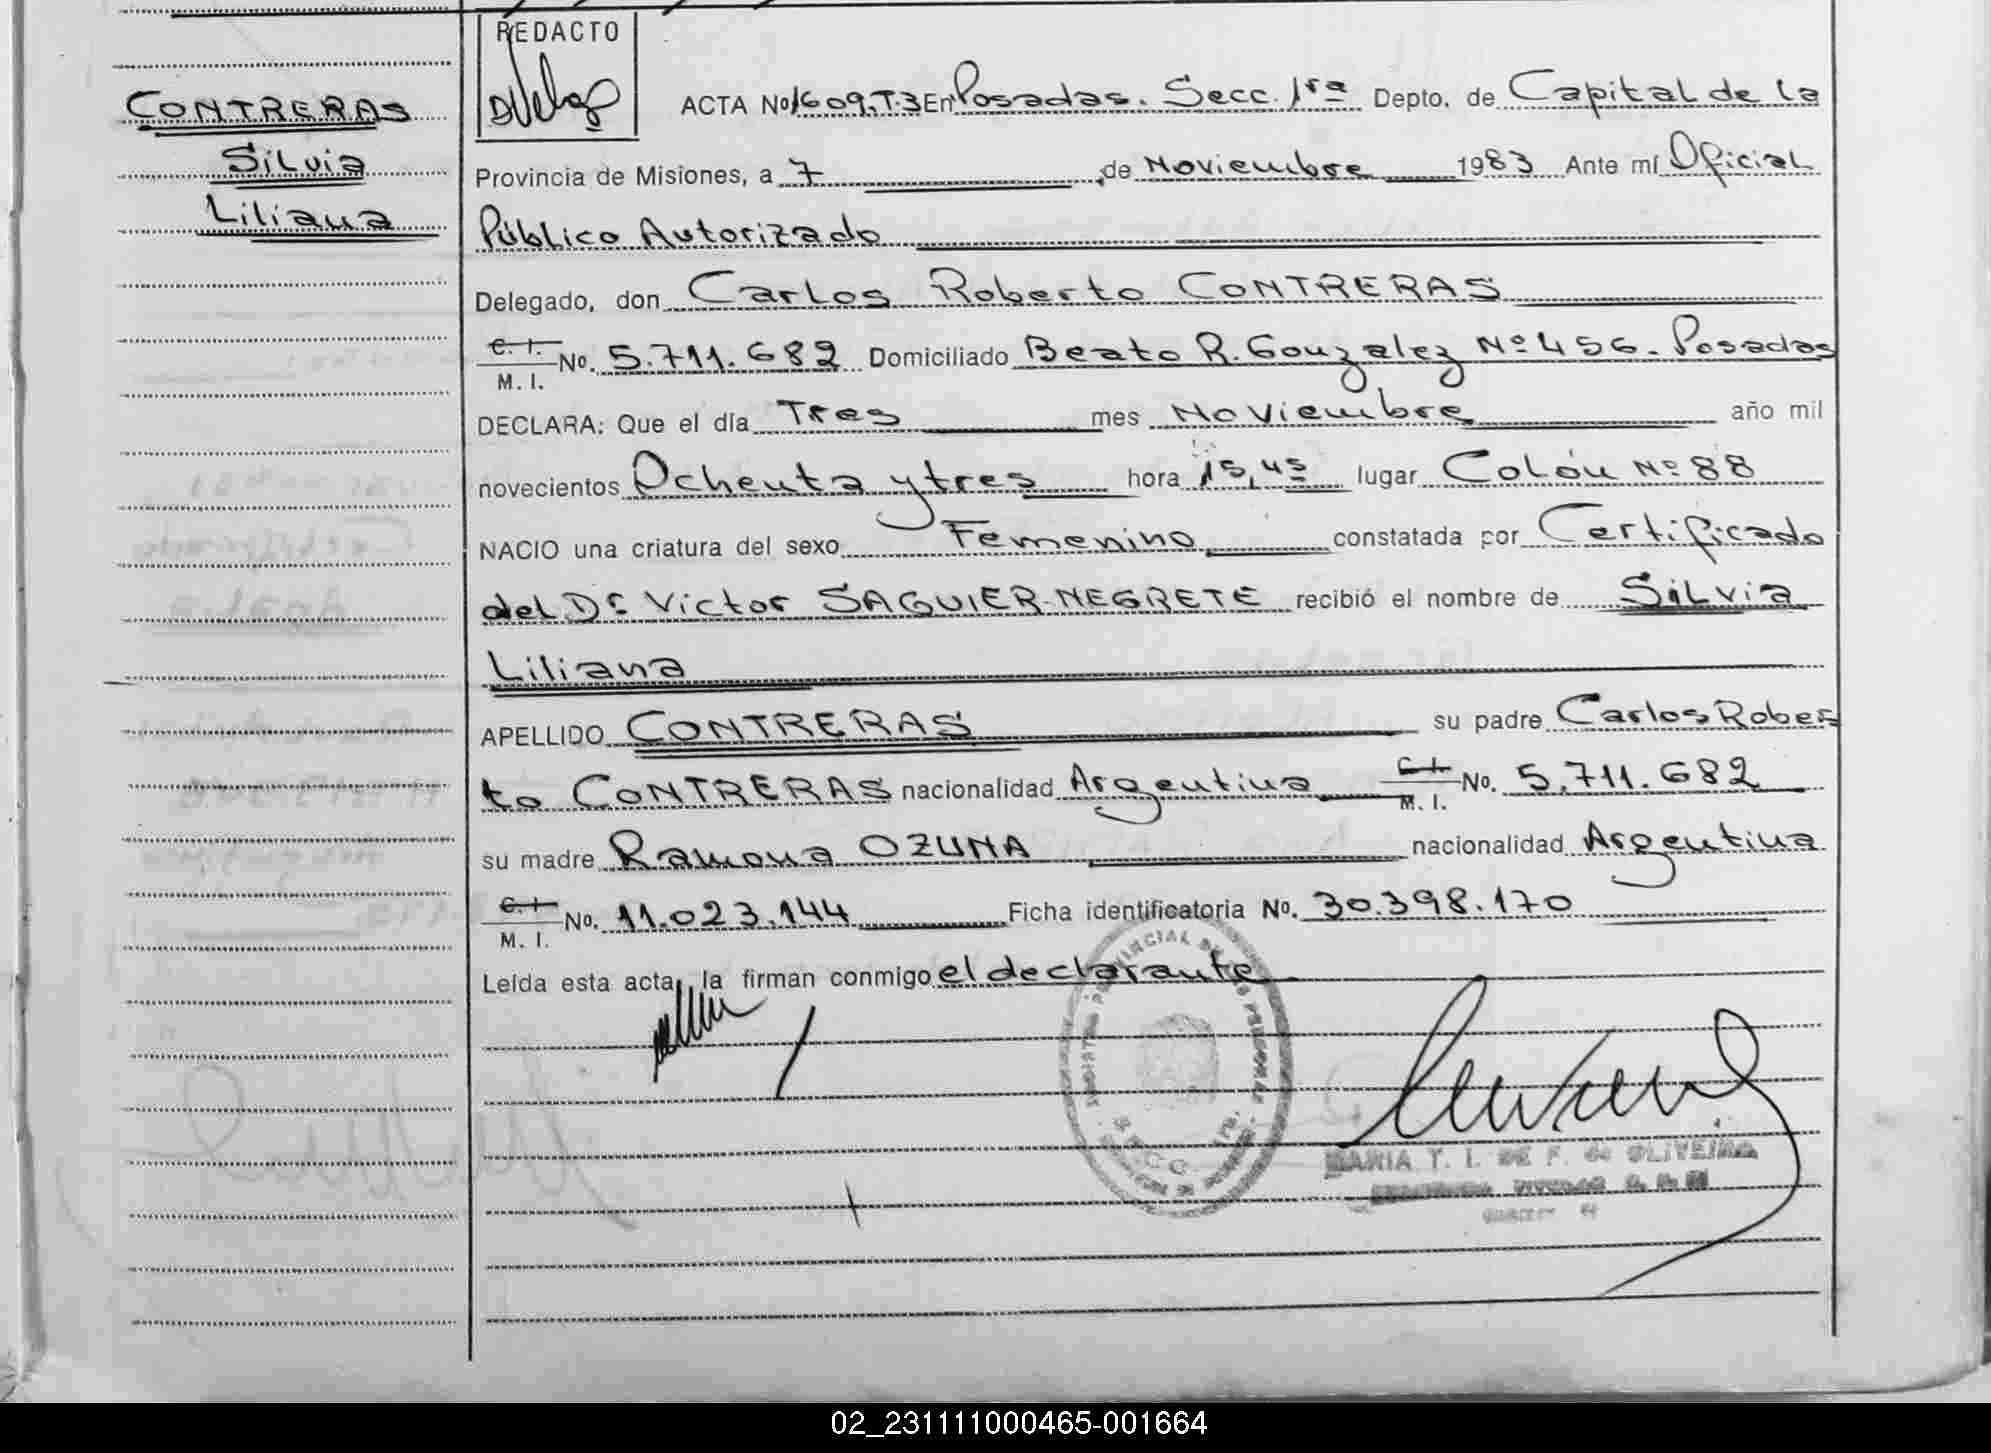 REDACTO
CONTRERAS
Silvia
Liliana
ACTA No 1609.T.3 En Posadas. Secc. 1ra Depto. de Capital de la
Provincia de Misiones, a 7 de Noviembre 1983 Ante mí Oficial
Público Autorizado
Delegado, don Carlos Roberto CONTRERAS
C. I.
M. I. No. 5.711.682 Domiciliado Beato R. Gonzalez Nº 456. Posadas
DECLARA: Que el día Tres mes Noviembre año mil
novecientos Ochenta y tres hora 15,45 lugar Colón Nº 88
NACIO una criatura del sexo Femenino constatada por Certificado
del Dr Victor SAGUIER-NEGRETE recibió el nombre de Silvia
Liliana
APELLIDO CONTRERAS su padre Carlos Rober
to CONTRERAS nacionalidad Argentina C. I. M. I. No. 5.711.682
su madre Ramona OZUNA nacionalidad Argentina
C. I.
M. I. No. 11.023.144 Ficha identificatoria No. 30.398.170
Leída esta acta, la firman conmigo el declarante
MARIA T. I. DE F. de OLIVEIRA
02_231111000465-001664